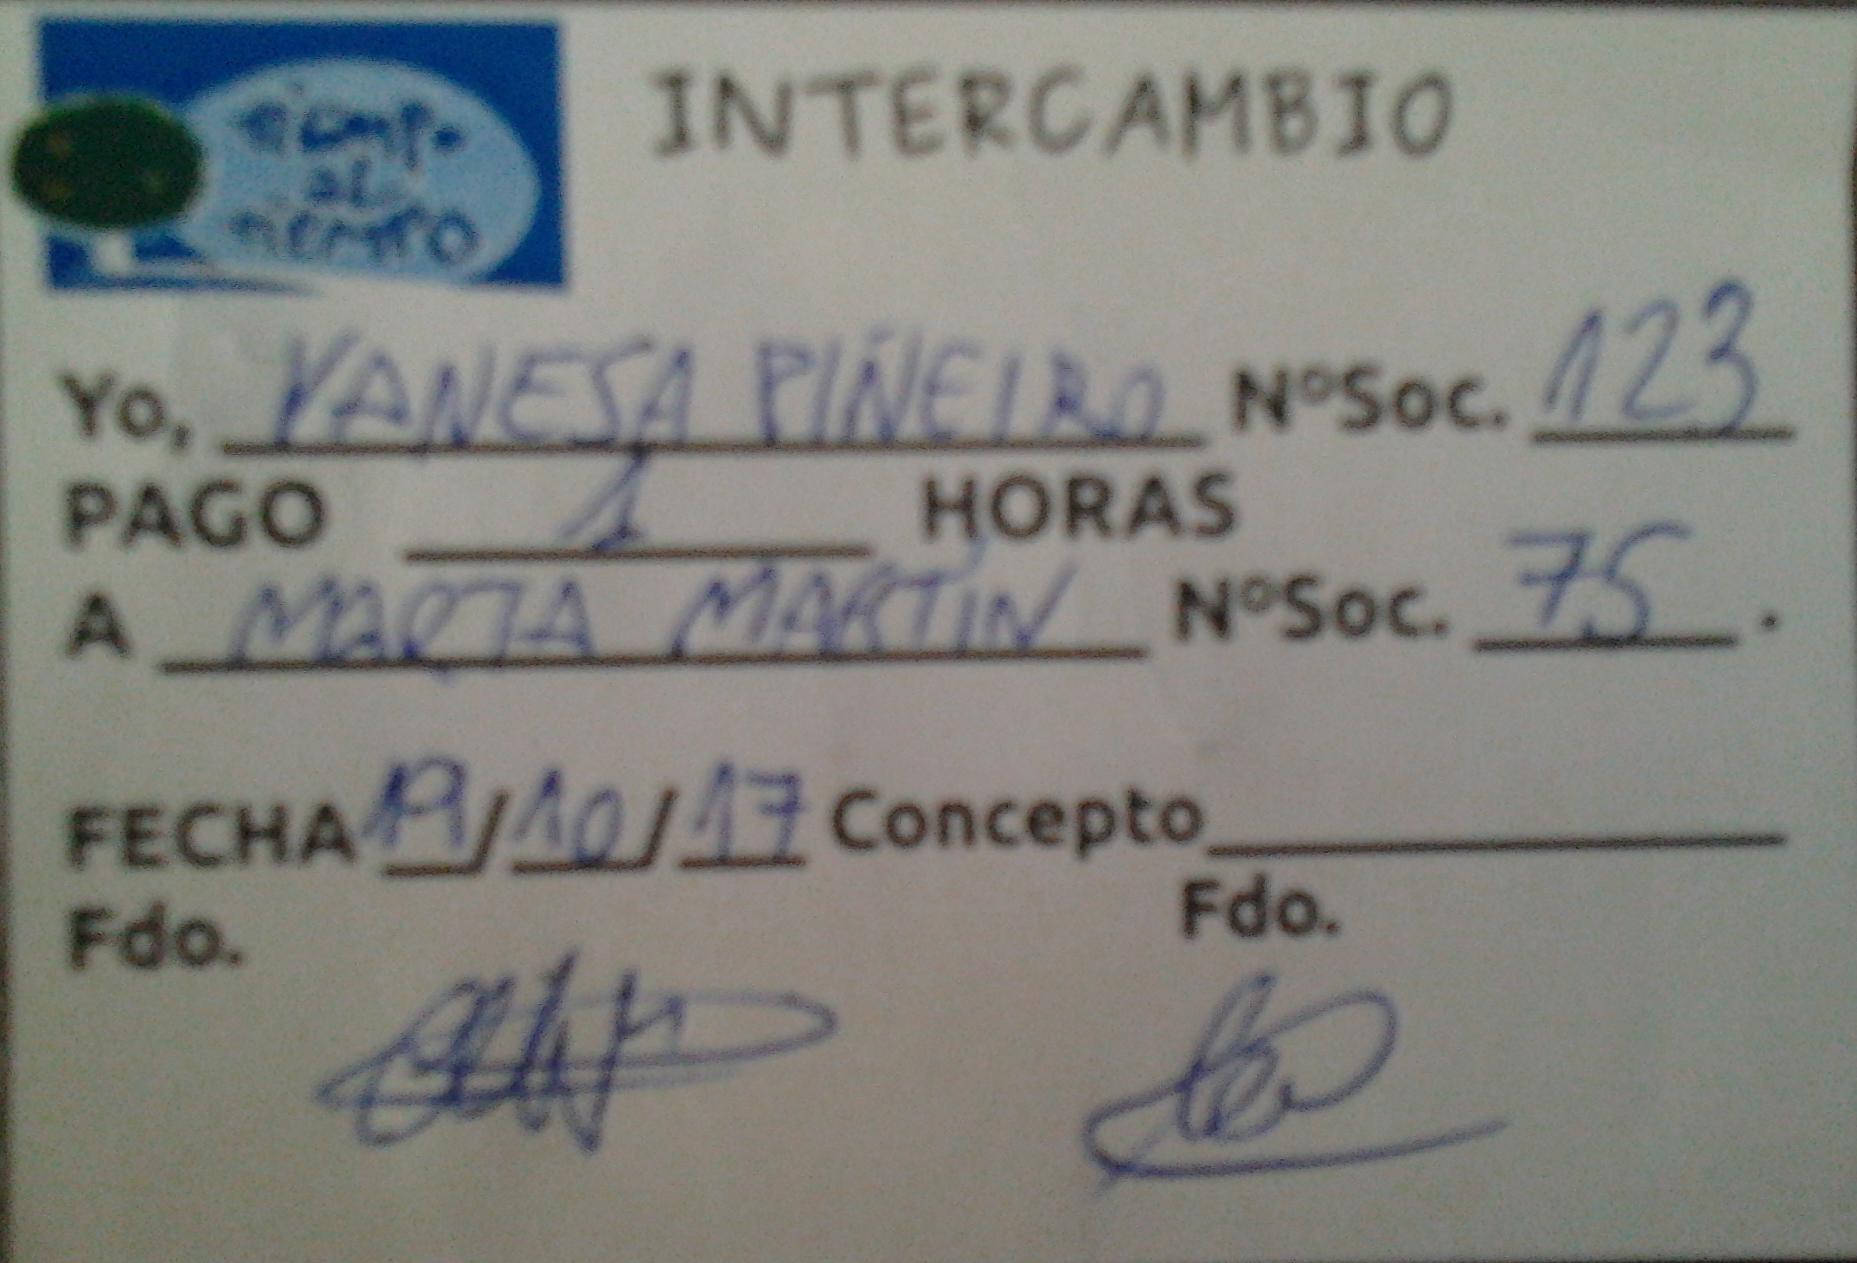 Tiempo
al
tiempo
INTERCAMBIO
Yo, VANESA PIÑEIRO NºSoc. 123
PAGO 1 HORAS
A MARTA MARTÍN NºSoc. 75.
FECHA 19/10/17 Concepto
Fdo. Fdo.